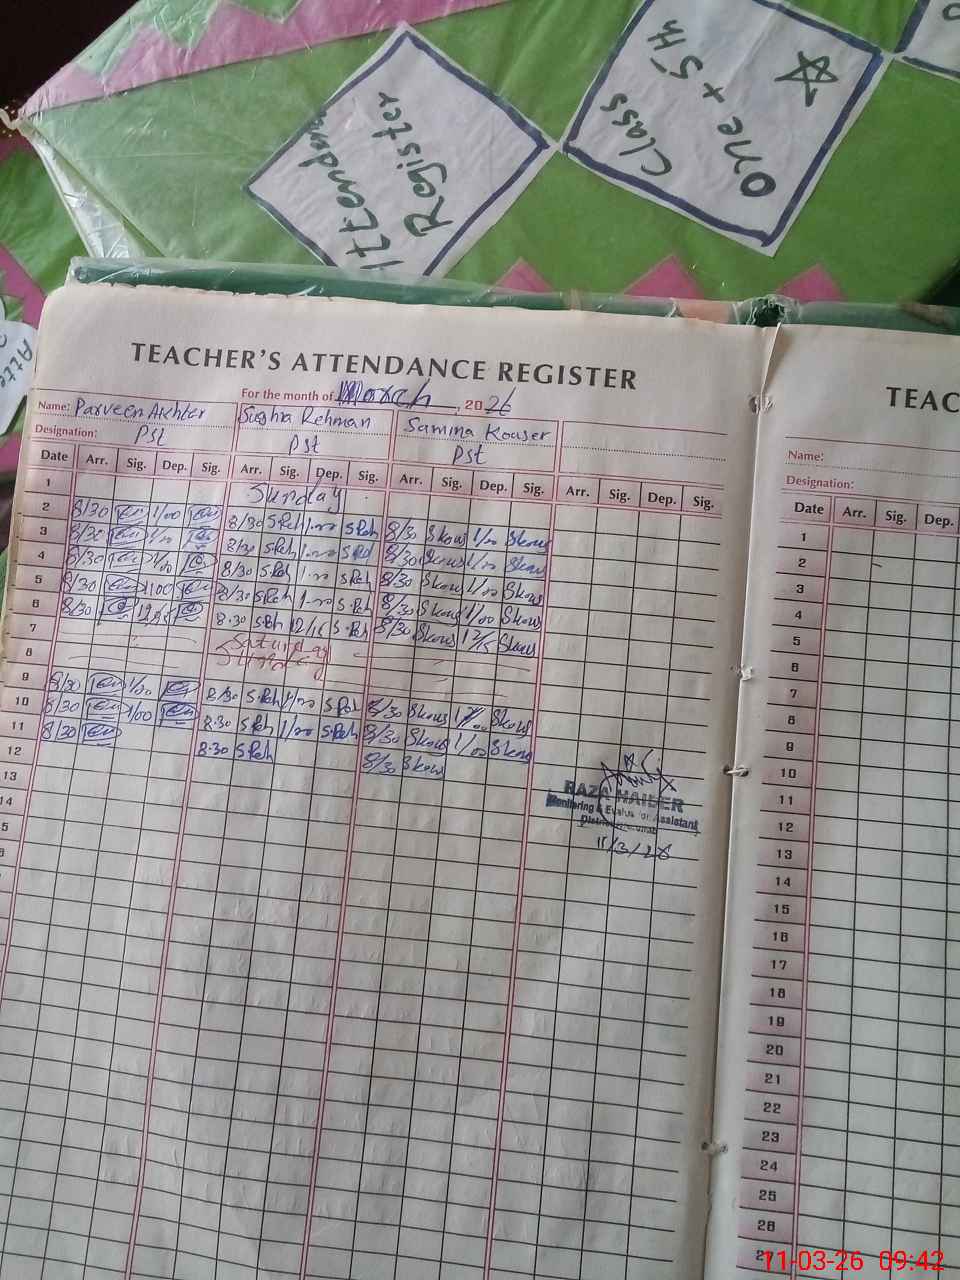 Attendan
Register
Class
One + 5th
Atte
TEACHER'S ATTENDANCE REGISTER
For the month of March, 2026
Name: Parveen Akhter Sughra Rehman Samina Kouser
Designation: Pst Pst Pst
Date Arr. Sig. Dep. Sig. Arr. Sig. Dep. Sig. Arr. Sig. Dep. Sig. Arr. Sig. Dep. Sig.
1 Sunday
2 8/30 1/00 8/30 S.Reh 1-00 S.Reh 8/30 Skous 1/00 Skous
3 8/30 8/30 S.Reh 1-00 8/30 Skous 1/00 Skous
4 8/30 1/00 8/30 S.Reh 1-00 S.Reh 8/30 Skous 1/00 Skous
5 8/30 1/00 8/30 S.Reh 1-00 S.Reh 8/30 Skous 1/00 Skous
6 8/30 8-30 S.Reh 12/15 S.Reh 8/30 Skous 12/15 Skous
7 Saturday
8 Sunday
9 8/30 1/00 8/30 S.Reh 1/00 S.Reh 8/30 Skous Skous
10 8/30 1/00 8-30 S.Reh 1/00 S.Reh 8/30 Skous 1/00 Skous
11 8/30 8-30 S.Reh 8/30 Skous
12
13
14
RAZA HAIDER
Monitoring & Evaluation Assistant
11/3/26
TEAC
Name:
Designation:
Date Arr. Sig. Dep.
1
2
3
4
5
6
7
8
9
10
11
12
13
14
15
16
17
18
19
20
21
22
23
24
25
26
11-03-26 09:42